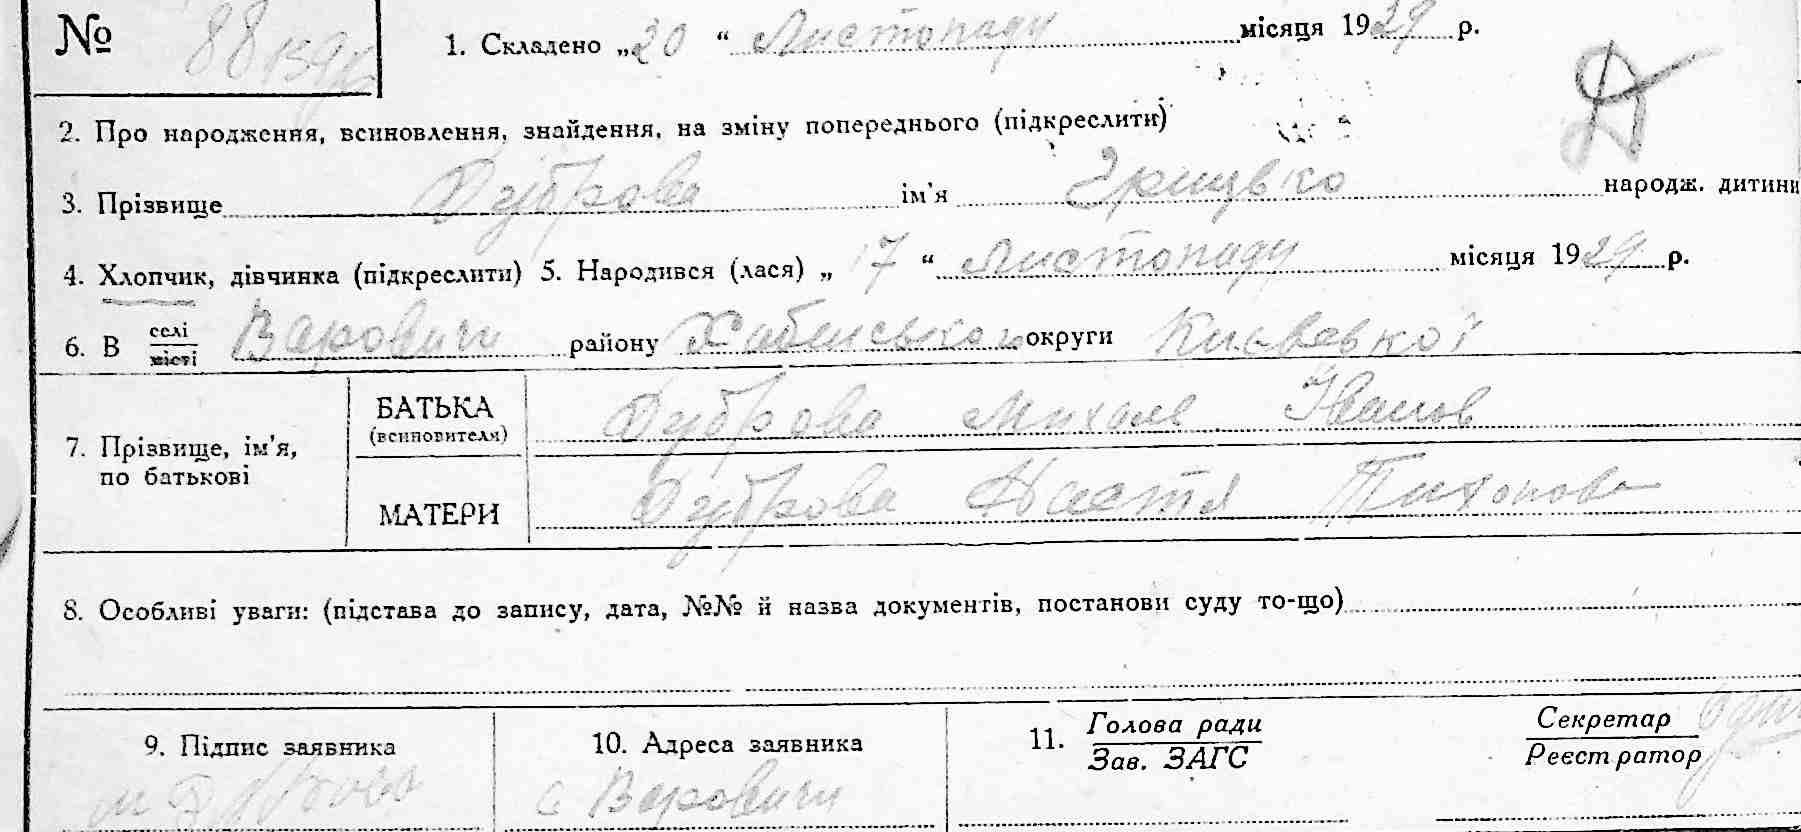 № 88
1. Складено „20“ Листопаду місяця 1929 р.
2. Про народження, всиновлення, знайдення, на зміну попереднього (підкреслити)
3. Прізвище Дуброва ім'я Грицько народж. дитини
4. Хлопчик, дівчинка (підкреслити) 5. Народився (лася) „17“ Листопаду місяця 1929 р.
6. В селі/місті Варовичи району округи Київської
7. Прізвище, ім'я, по батькові
БАТЬКА (всиновителя) Дуброва Иванов
МАТЕРИ Дуброва Настя Тихонова
8. Особливі уваги: (підстава до запису, дата, №№ й назва документів, постанови суду то-що)
9. Підпис заявника
10. Адреса заявника
с Варовичи
11. Голова ради
Зав. ЗАГС
Секретар
Реєстратор